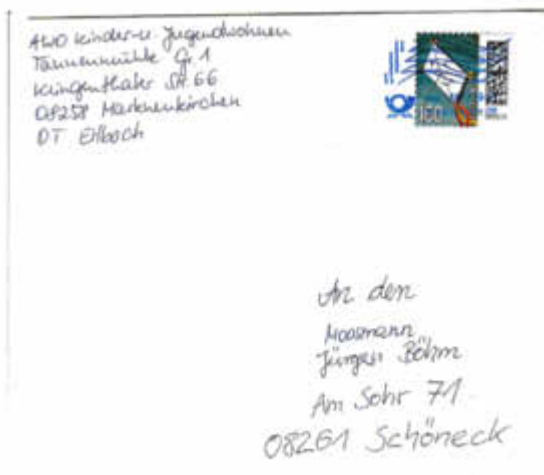 AWO Kinder-u. Jugendwohnen
Tannenmühle Gr. 1
Klingenthaler Str. 66
08258 Markneukirchen
OT Erlbach
160
An den
Moosmann
Jürgen Böhm
Am Sohr 71
08261 Schöneck